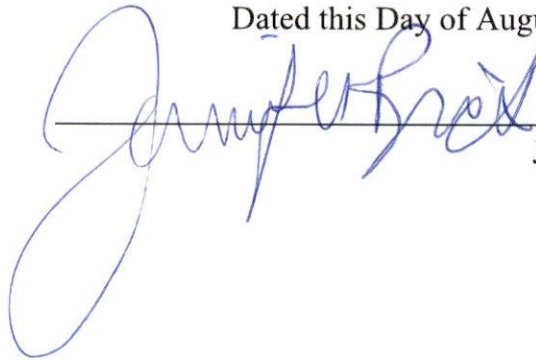 Dated this Day of Augu
Jennifer